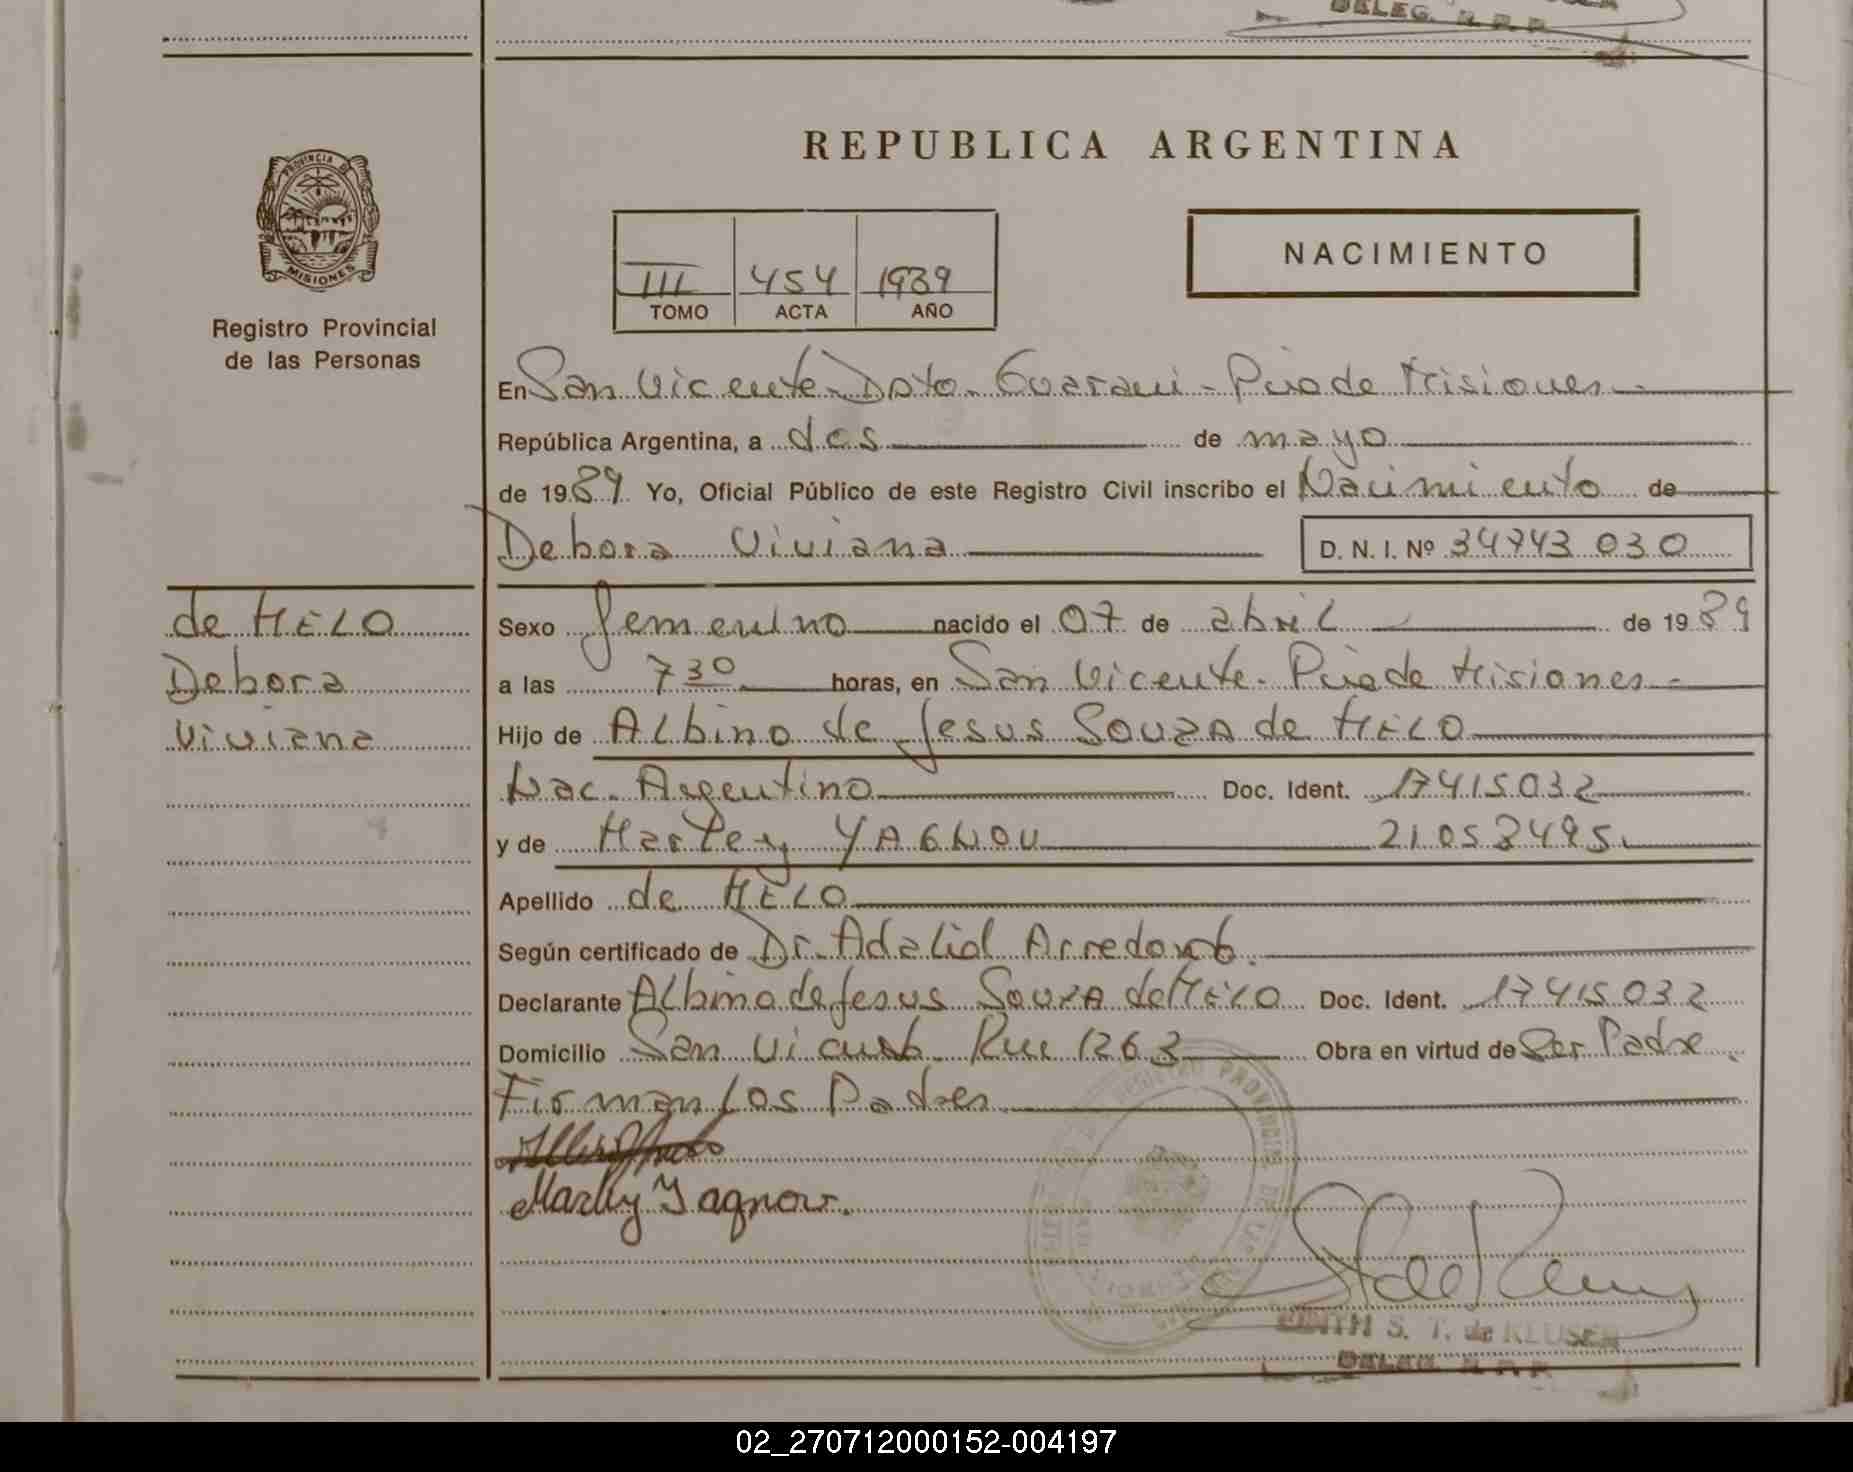 DELEG. R. P. P.
REPUBLICA ARGENTINA
PROVINCIA DE
MISIONES
Registro Provincial
de las Personas
III 454 1989
TOMO ACTA AÑO
NACIMIENTO
En San Vicente - Dpto. Guarani - Pcia de Misiones
República Argentina, a dos de mayo
de 1989 Yo, Oficial Público de este Registro Civil inscribo el Nacimiento de
Debora Viviana D. N. I. Nº 34743 030
de MELO
Debora
Viviana
Sexo femenino nacido el 07 de abril de 1989
a las 7 30 horas, en San Vicente - Pcia de Misiones -
Hijo de Albino de Jesus Souza de MELO
Nac. Argentino Doc. Ident. 17415032
y de Marley YAGNOU 21.053495
Apellido de MELO
Según certificado de Dr. Adalid Arredondo.
Declarante Albino de Jesus Souza de MELO Doc. Ident. 17415032
Domicilio San Vicente Ruc 1263 Obra en virtud de Ser Padre.
Firman los Padres
Marlly Yagnou.
S. T. de KLUSER
DELEG. R. P. P.
02_270712000152-004197